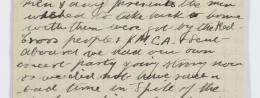 men & dainty presents the men
wished to take back home
with them were got by the Red
Cross people & Y.M.C.A. I sent
aboard we had our own
concert party going strong now
so we did not have such a
bad time in spite of the